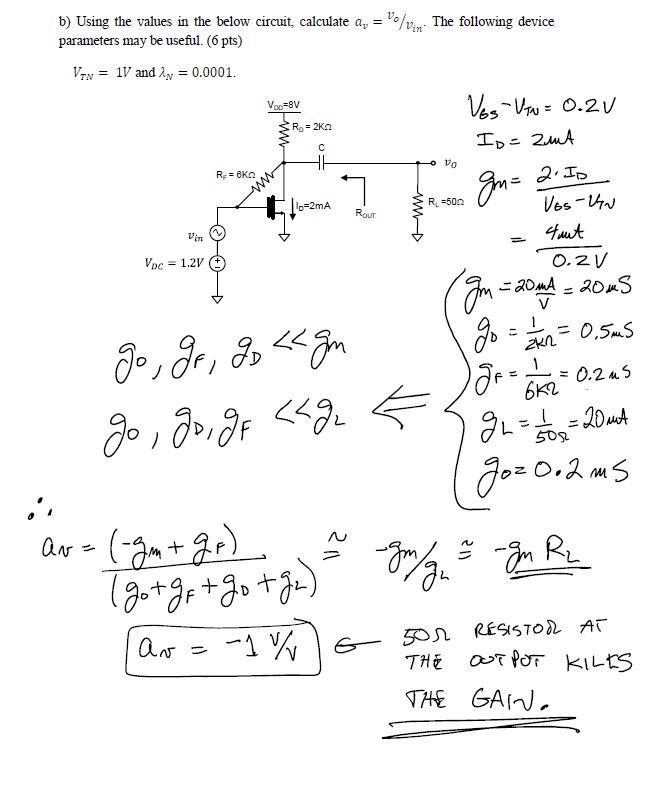 b) Using the values in the below circuit, calculate aᵥ = ᵛᵒ/ᵥᵢₙ. The following device
parameters may be useful. (6 pts)
V_TN = 1V and λ_N = 0.0001.
V_DD=8V
R_D = 2KΩ
C
v_O
R_F = 6KΩ
I_D=2mA
R_OUT
R_L =50Ω
v_in
V_DC = 1.2V
V_GS - V_TN = 0.2V
I_D = 2mA
gm = 2·I_D / V_GS - V_TN
= 4mA / 0.2V
gm = 20 mA/V = 20mS
g_D = 1/2KΩ = 0.5mS
g_F = 1/6KΩ = 0.2mS
g_L = 1/50Ω = 20mA
g_o = 0.2mS
g_o, g_F, g_D << gm
g_o, g_D, g_F << g_L ⇐
∴
av = (-gm + g_F) / (g_o + g_F + g_D + g_L) ≅ -gm/g_L ≅ -gm R_L
av = -1 V/V ← 50Ω RESISTOR AT
THE OUTPUT KILLS
THE GAIN.